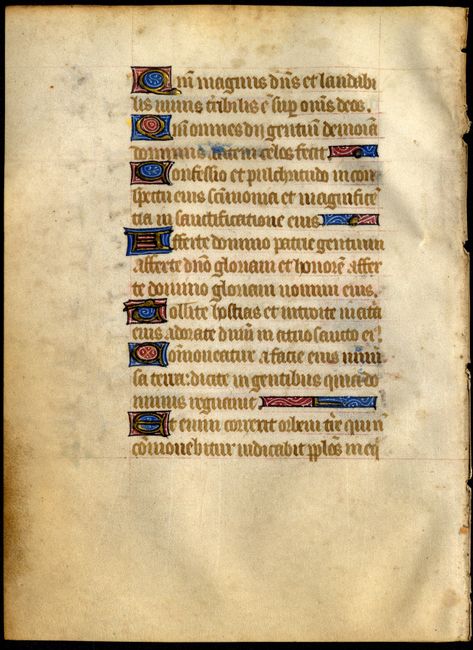 Qm̄ magnus dn̄s et laudabi
lis nimis tribilis ē sup om̄s deos.
Qm̄ omnes dii gentiū demonia
dominus autem celos fecit
Confessio et pulchritudo in con
spectu eius sc̄imonia et magnificē
tia in sanctificatione eius
Afferte domino patrie gentium
afferte dn̄o gloriam et honorē affer
te domino gloriam nomini eius.
Tollite hostias et introite in atria
eius adorate dn̄m in atrio sancto ei⁹
Com̄oueatur a facie eius uniū
sa terra: dicite in gentibus quia do
minus regnauit
Et enim correxit orbem tr̄e qui nō
cōmouebitur iudicabit pp̄los in eq̄